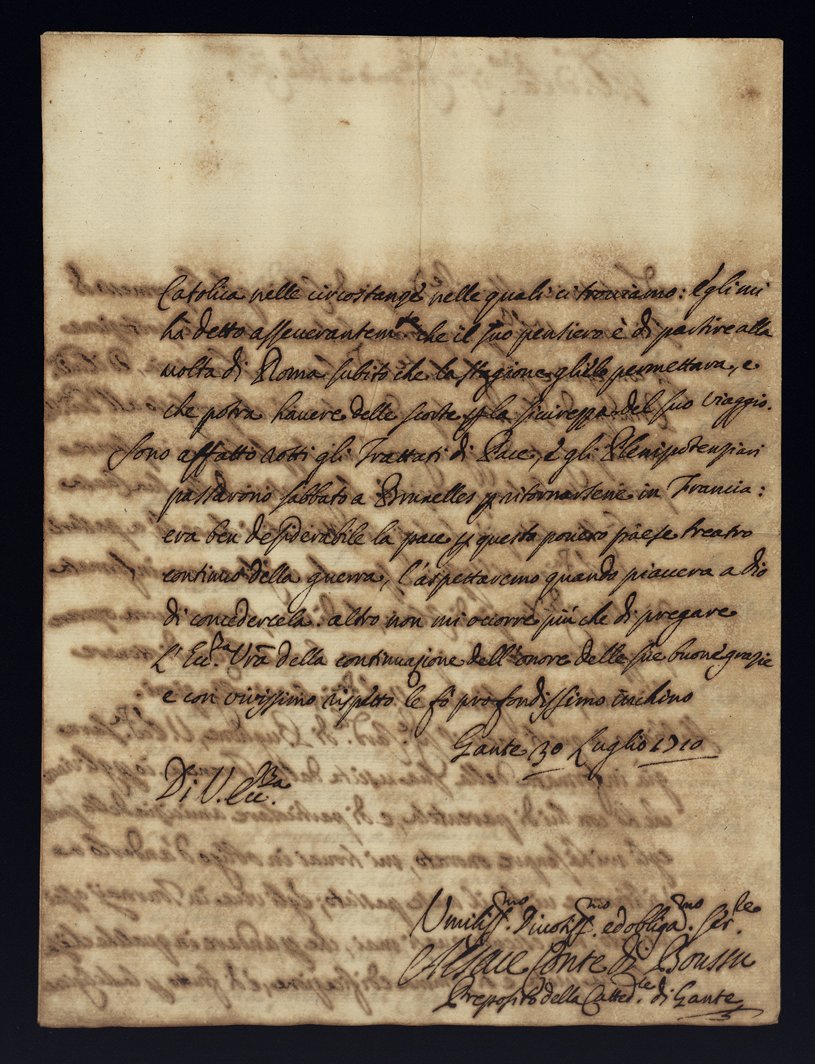 Catolica nelle circostanze nelle quali ci trouiamo: égli mi
hà detto asseuerantem.te che il suo pensiero è di partire alla
uolta di Roma subito che la stagione gliélo permettara, e
che potra hauere delle scorte p la sicurezza del suo viaggio.
Sono affatto rotti gli Trattati di Pace, è gli Plenipotenziari
passarono sabbato a Brunelles p ritornarsene in Francia:
era ben desiderabile la pace p questo pouero paése treatro
continuo della guerra, l'aspettaremo quando piacera a dio
di concedercela. altro non mi ocorre più che di pregare
L'Ecc.za Vrã della continuazione dell'onore delle sue buone grazie
e con vivissimo rispetto le fò profondissimo inchino
Gante 30 Luglio 1710
Di V. Ecc.za
Umiliss.mo Diuotiss.mo ed obliga.mo Ser.le
Alsace Conte di Boussu
Preposito della Catted.le di Gante